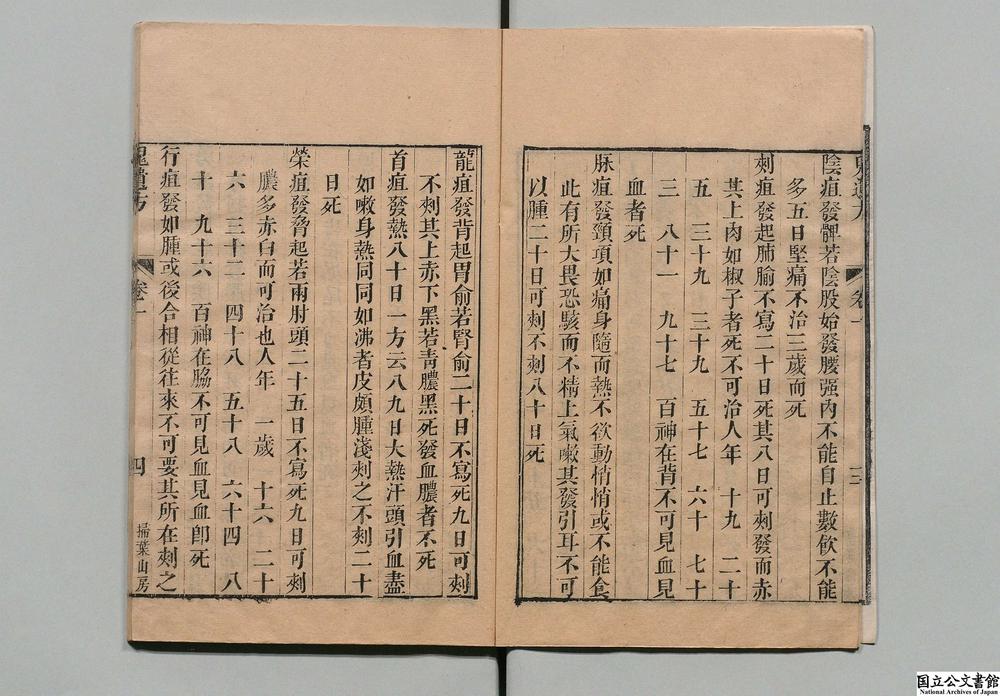 鬼遺方
卷一
三
陰疽發髀若陰股始發腰强內不能自止數飲不能
多五日堅痛不治三歲而死
刺疽發起肺腧不寫二十日死其八日可刺發而赤
其上肉如椒子者死不可治人年 十九 二十
五 三十九 三十九 五十七 六十 七十
三 八十一 九十七 百神在背不可見血見
血者死
脉疽發頸項如痛身隨而熱不欲動悄悄或不能食
此有所大畏恐駭而不精上氣嗽其發引耳不可
以腫二十日可刺不刺八十日死
龍疽發背起胃俞若腎俞二十日不寫死九日可刺
不刺其上赤下黑若靑膿黑死發血膿者不死
首疽發熱八十日一方云八九日大熱汗頭引血盡
如嗽身熱同同如沸者皮頗腫淺刺之不刺二十
日死
榮疽發脅起若兩肘頭二十五日不寫死九日可刺
膿多赤白而可治也人年 一歲 十六 二十
六 三十二 四十八 五十八 六十四 八
十 九十六 百神在脇不可見血見血卽死
行疽發如腫或後合相從往來不可要其所在刺之
鬼遺方
卷一
四
掃葉山房
国立公文書館
National Archives of Japan